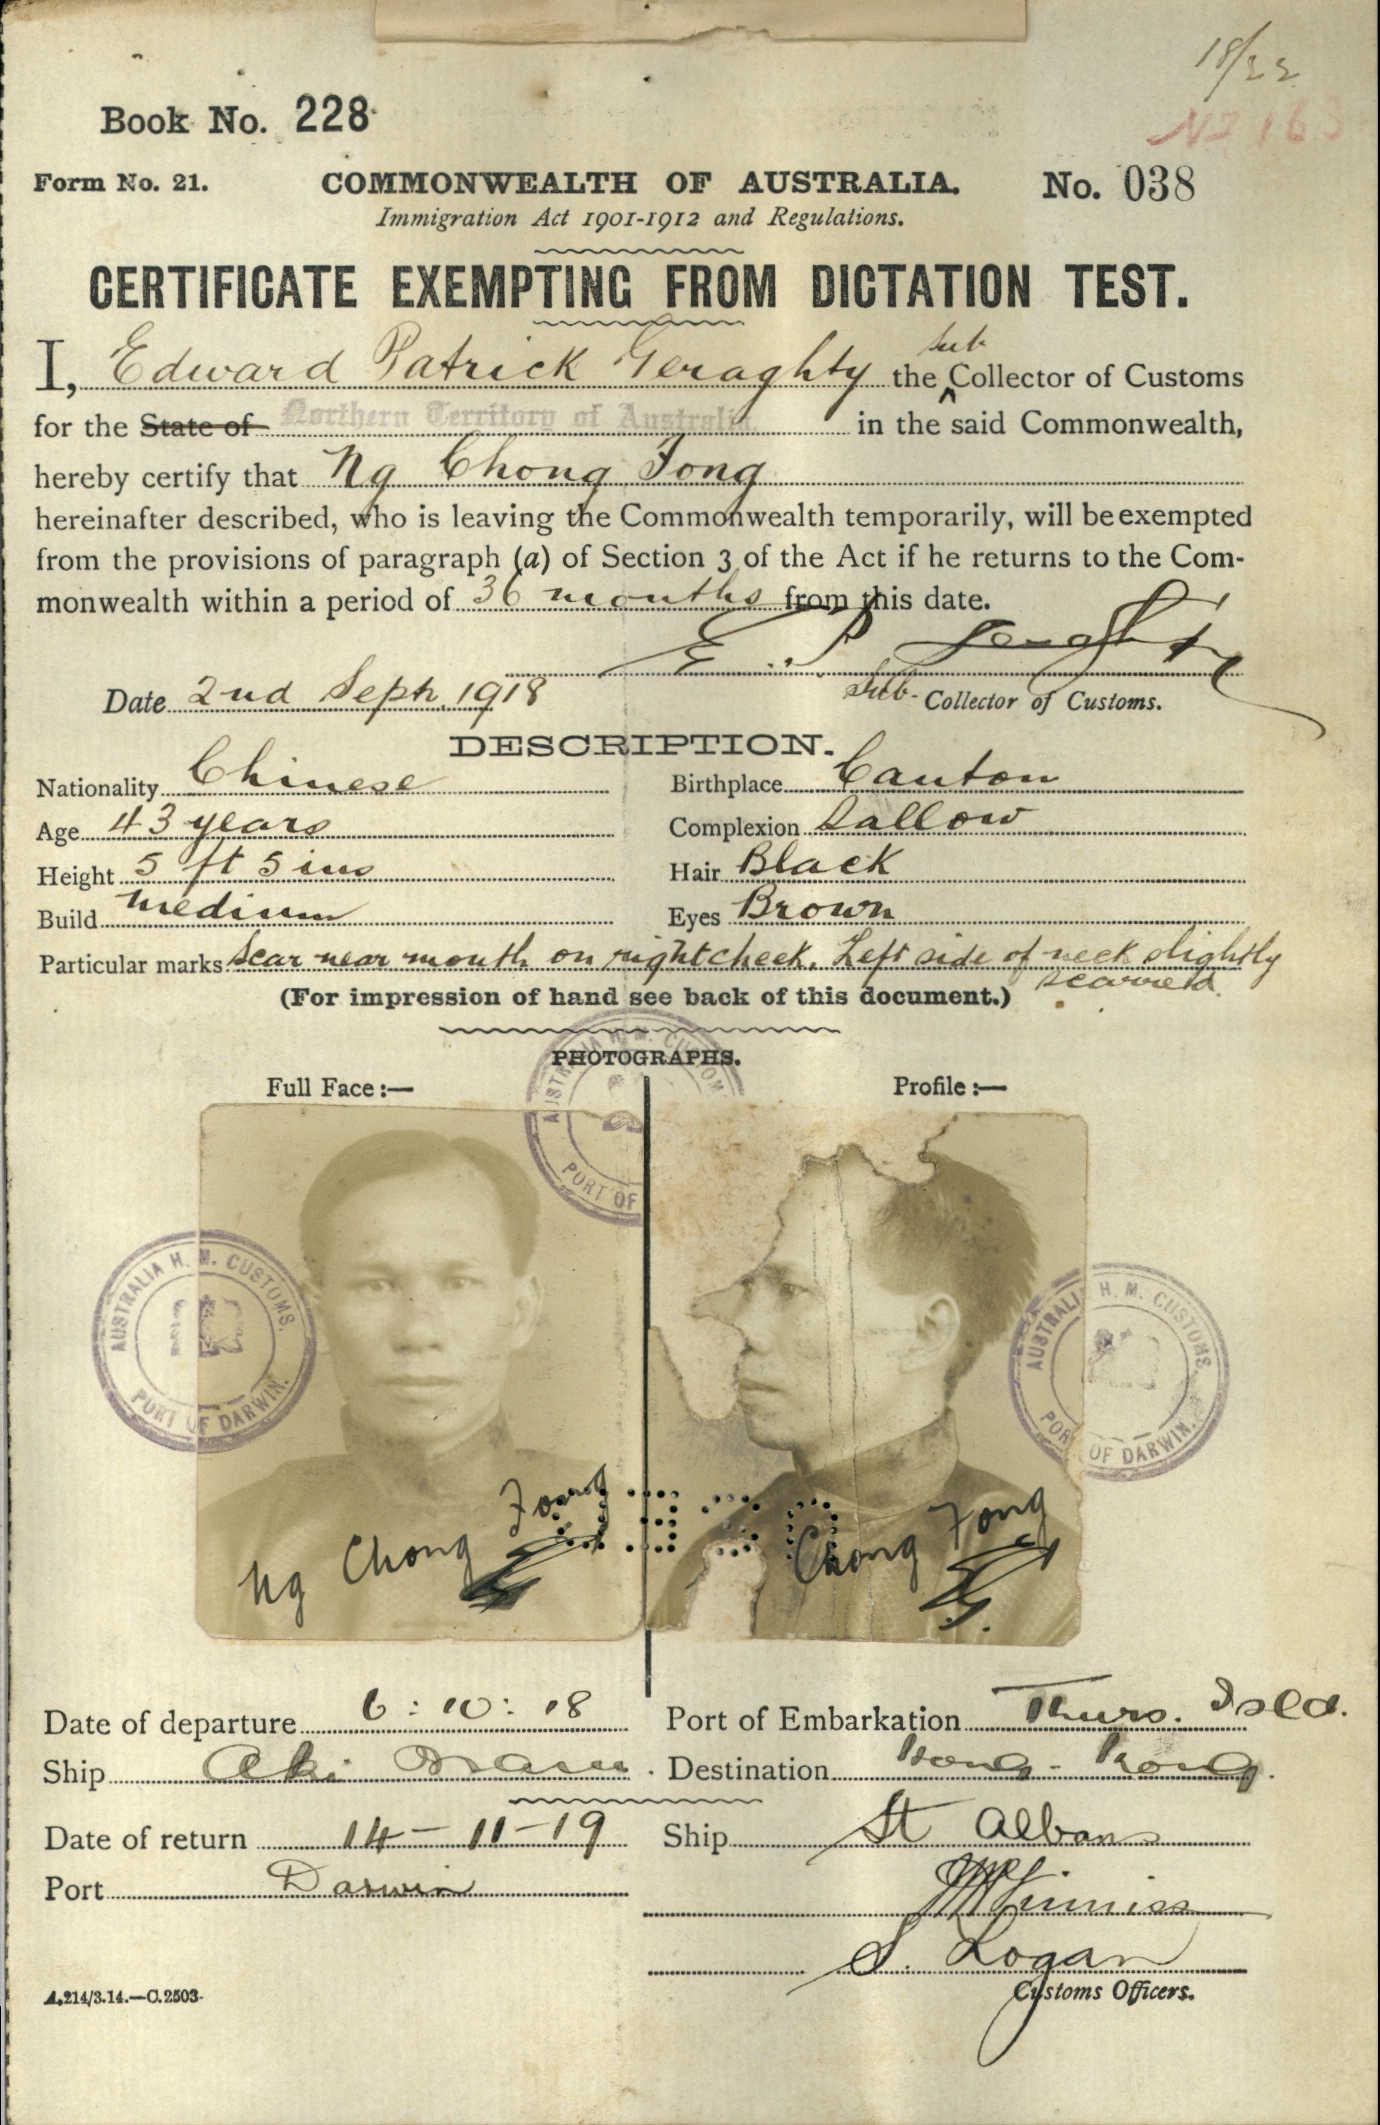 18/22
Book No. 228
Form No. 21. COMMONWEALTH OF AUSTRALIA. No. 038
Immigration Act 1901-1912 and Regulations.
CERTIFICATE EXEMPTING FROM DICTATION TEST.
I, Edward Patrick Geraghty the Sub Collector of Customs
for the State of Northern Territory of Australia. in the said Commonwealth,
hereby certify that Ng Chong Fong
hereinafter described, who is leaving the Commonwealth temporarily, will be exempted
from the provisions of paragraph (a) of Section 3 of the Act if he returns to the Com-
monwealth within a period of 36 months from this date.
E. P. Geraghty
Date 2nd Sept. 1918 Sub- Collector of Customs.
DESCRIPTION.
Nationality Chinese Birthplace Canton
Age 43 years Complexion Sallow
Height 5 ft 5 ins Hair Black
Build medium Eyes Brown
Particular marks Scar near mouth on right cheek. Left side of neck slightly
scarred.
(For impression of hand see back of this document.)
PHOTOGRAPHS.
Full Face:— Profile:—
AUSTRALIA H. M. CUSTOM
PORT OF
AUSTRALIA H. M. CUSTOMS.
PORT OF DARWIN.
AUSTRALIA H. M. CUSTOMS.
PORT OF DARWIN.
Ng Chong Fong
Chong Fong
Date of departure 6:10:18 Port of Embarkation Thurs. Isld.
Ship Aki Maru. Destination Hong-Kong.
Date of return 14-11-19 Ship St Albans
Port Darwin
S. Logan
Customs Officers.
A.214/3.14.—C.2503.